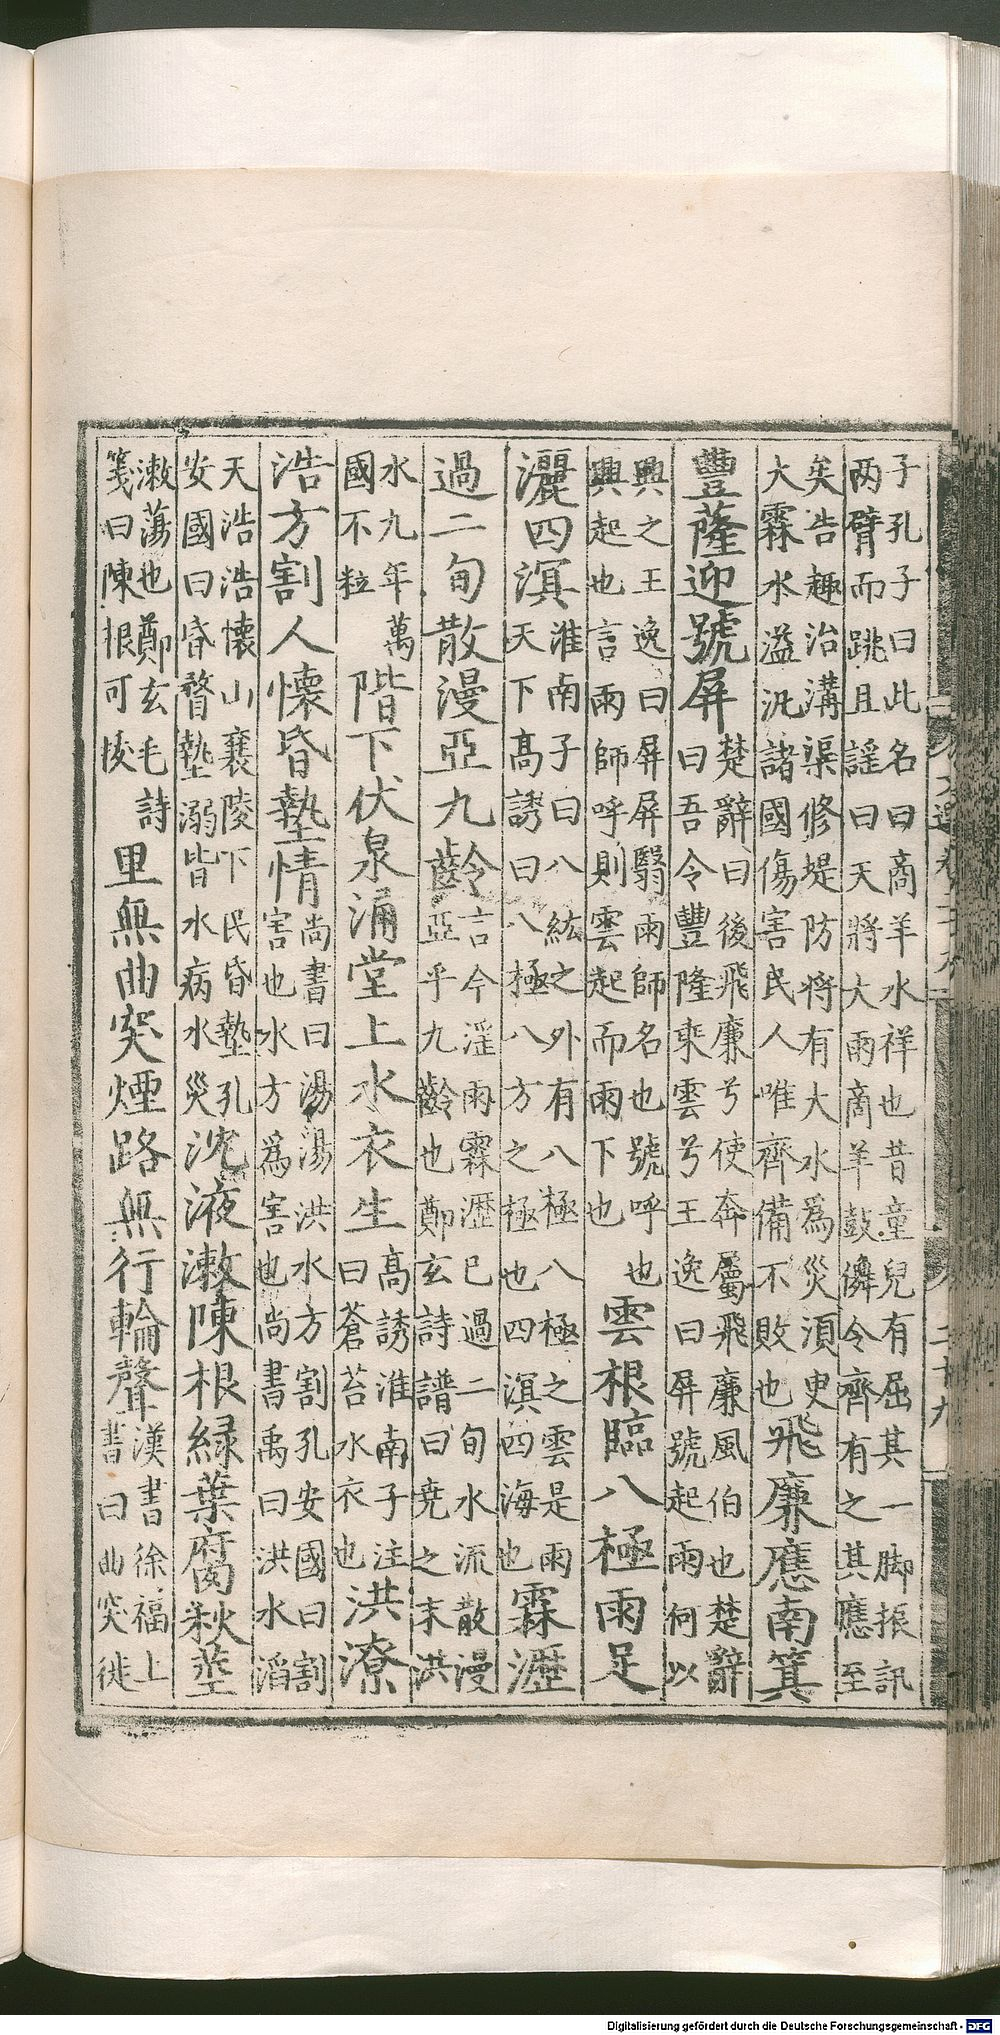 子孔子曰此名曰商羊水祥也昔童兒有屈其一脚振訊
两臂而跳且謡曰天將大雨商羊鼓儛今齊有之其應至
矣告趣治溝渠修堤防將有大水爲災須臾
大霖水溢汎諸國傷害民人唯齊備不敗也
飛廉應南箕
豐蕯迎號屏
楚辭曰後飛廉兮使奔屬飛廉風伯也楚辭
曰吾令豐隆乘雲兮王逸曰屏號起雨何以
興之王逸曰屏屏翳雨師名也號呼也
興起也言雨師呼則雲起而雨下也
雲根臨八極雨足
灑四溟
淮南子曰八紘之外有八極八極之雲是雨
天下高誘曰八極八方之極也四溟四海也
霖瀝
過二旬散漫亞九齡
言今淫雨霖瀝已過二旬水流散漫
亞乎九齡也鄭玄詩譜曰尭之末洪
水九年萬
國不粒
階下伏泉涌堂上水衣生
高誘淮南子注
曰蒼苔水衣也
洪潦
浩方割人懷昏墊情
尚書曰湯湯洪水方割孔安國曰割
害也水方爲害也尚書禹曰洪水滔
天浩浩懷山襄陵下民昏墊孔
安國曰昏瞀墊溺皆水病水災
沈液漱陳根緑葉腐秋莖
漱蕩也鄭玄毛詩
箋曰陳根可拔
里無曲突煙路無行輪聲
漢書徐福上
書曰曲突徙
文選卷二十九
二十九
Digitalisierung gefördert durch die Deutsche Forschungsgemeinschaft - DFG